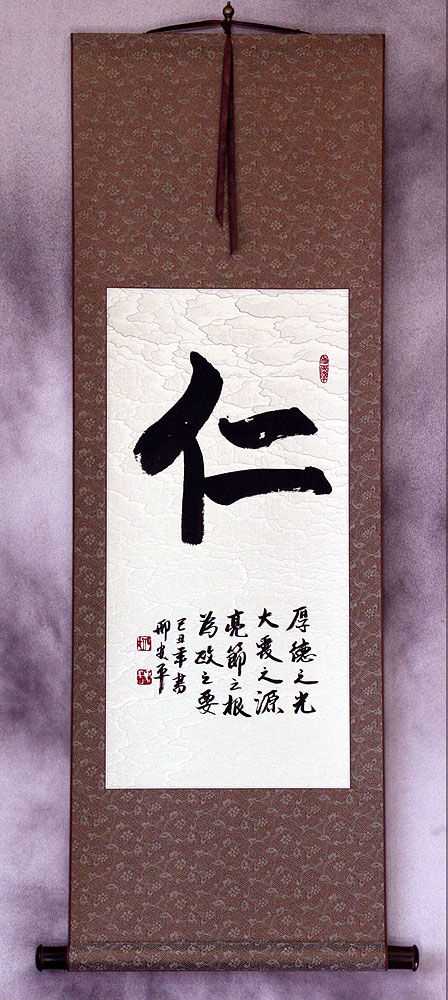 仁
厚德之光
大爱之源
亮節之根
為政之要
己丑年書
邢安平